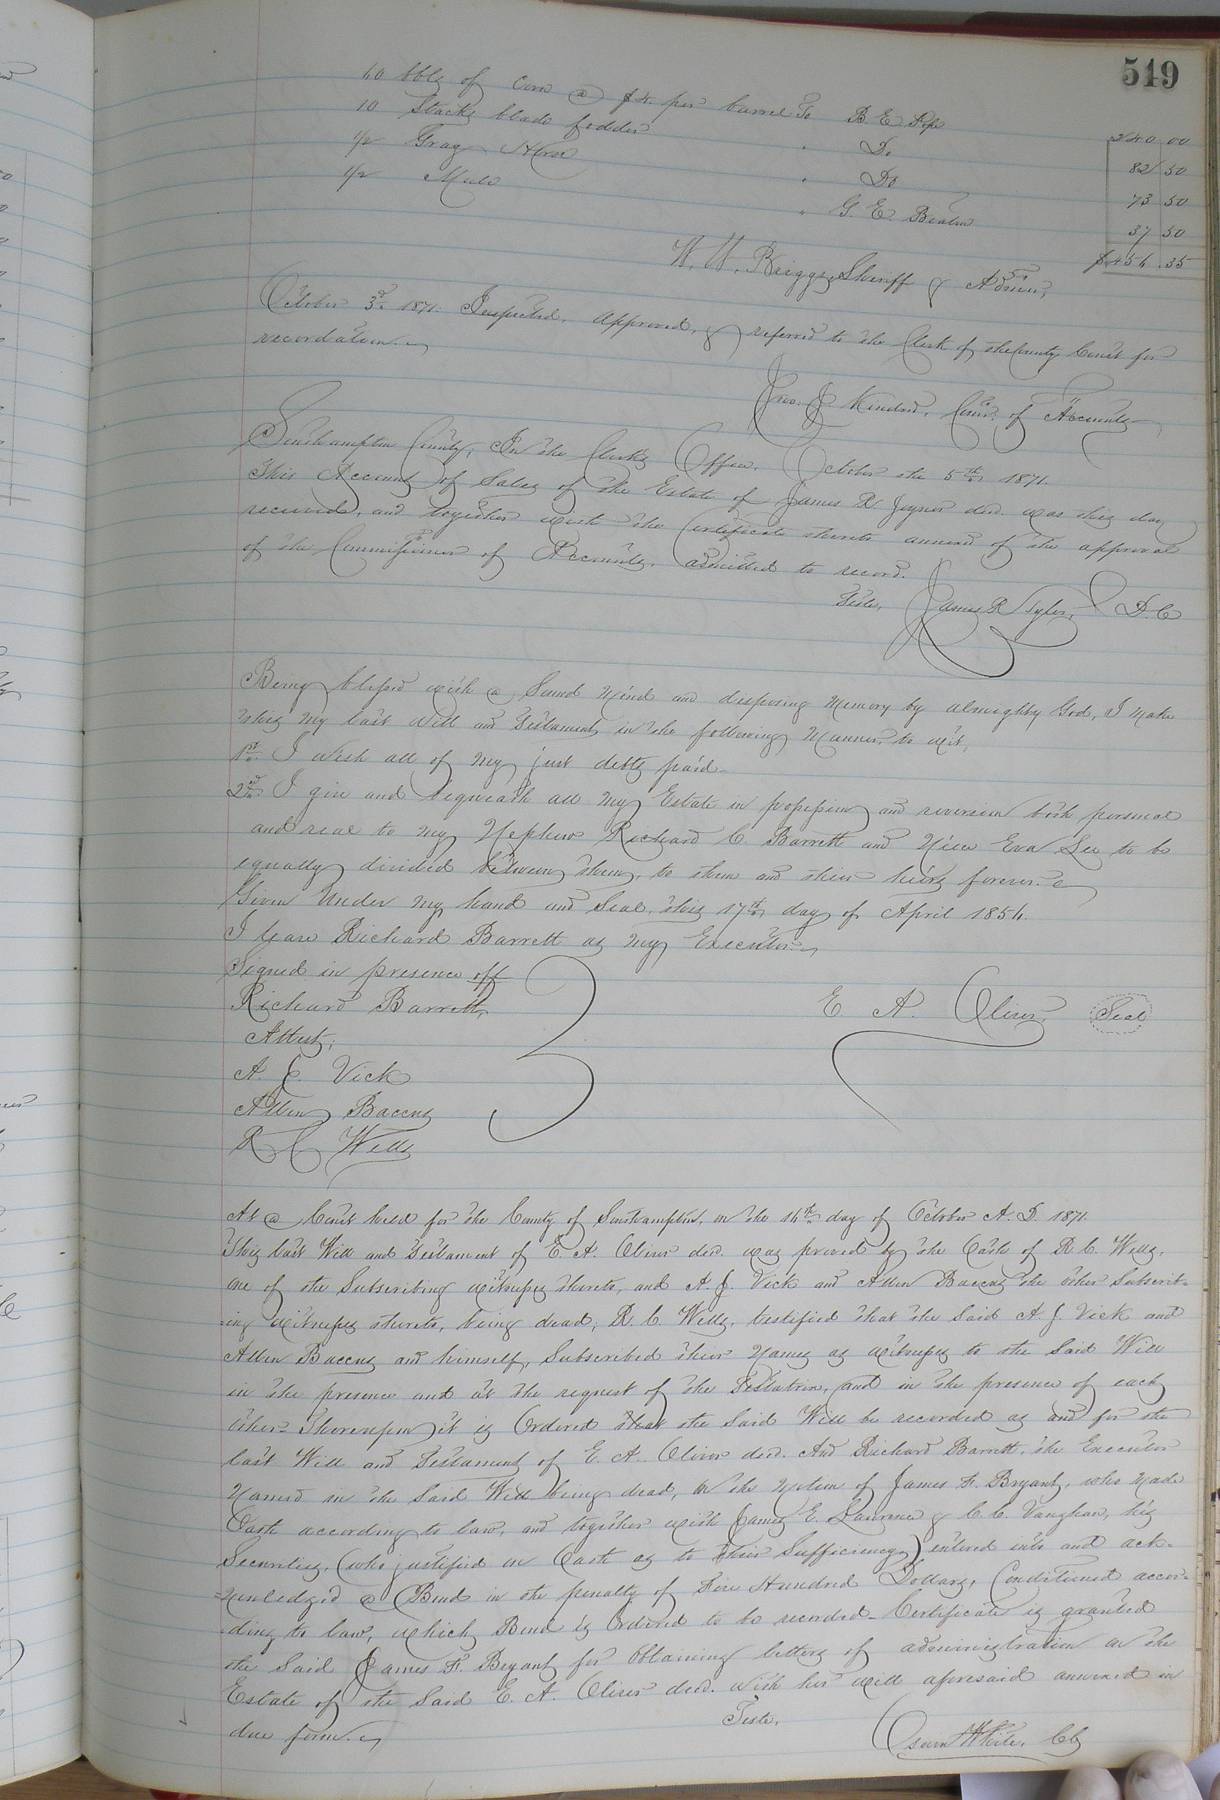 519
60 bbls of Corn @ $4. per barrel To B E Pope 240 00
10 Stacks blade fodder " Do 82 50
1/2 Gray Horse " Do 73 50
1/2 Mule " G. E. Beaton 37 50
35
W. W. Briggs, Sheriff & Admin,
October 3rd 1871. Inspected, approved, & referred to the Clerk of the County Court for
recordation.
Jno. J. Kindred, Comr. of Accounts
Southampton County, In the Clerk's Office, October the 5th 1871.
This Account of Sales of the Estate of James R Joyner decd. was this day
received, and together with the Certificate thereto annexed of the approval
of the Commissioner of Accounts, admitted to record.
Teste, James R Tyler, D. C
Being blessed with a Sound Mind and disposing Memory by almighty God, I make
this my last Will and Testament, in the following Manner, to wit,
1st I wish all of my just debts paid
2nd I give and bequeath all my Estate in possession and reversion both personal
and real to my Nephew Richard C. Barrett and Niece Eva Lee to be
equally divided between them, to them and their heirs forever.
Given Under my hand and Seal, this 17th day of April 1854.
I leave Richard Barrett as my Executor.
Signed in presence off
Richard Barrett,
E A. Oliver Seal
Attest;
A. J. Vick
Allen Baccus
R C Wills
At a Court held for the County of Southampton, on the 14th day of October A. D. 1871.
This last Will and Testament of E. A. Oliver decd. was proved by the Oath of R. C. Wills,
one of the Subscribing witnesses thereto, and A. J. Vick and Allen Baccus the other Subscrib-
ing witnesses thereto, being dead, R. C. Wills, testified that the Said A. J. Vick and
Allen Baccus and himself, Subscribed their Names as witnesses to the Said Will
in the presence and at the request of the Testatrix, and in the presence of each
other. Thereupon it is Ordered that the Said Will be recorded as and for the
last Will and Testament of E. A. Oliver decd. And Richard Barrett, the Executor
Named in the Said Will being dead, on the Motion of James F. Bryant, who made
Oath according to law, and together with James E. Lawrence & C. C. Vaughan, his
Securities, (who justified on Oath as to their Sufficiency,) entered into and ack-
nowledged a Bond in the penalty of Five Hundred Dollars, Conditioned accor-
ding to law, which Bond is Ordered to be recorded. Certificate is granted
the Said James F. Bryant for obtaining letters of administration on the
Estate of the Said E. A. Oliver decd. with her will aforesaid annexed in
due form.
Teste,
Osum White, Clk